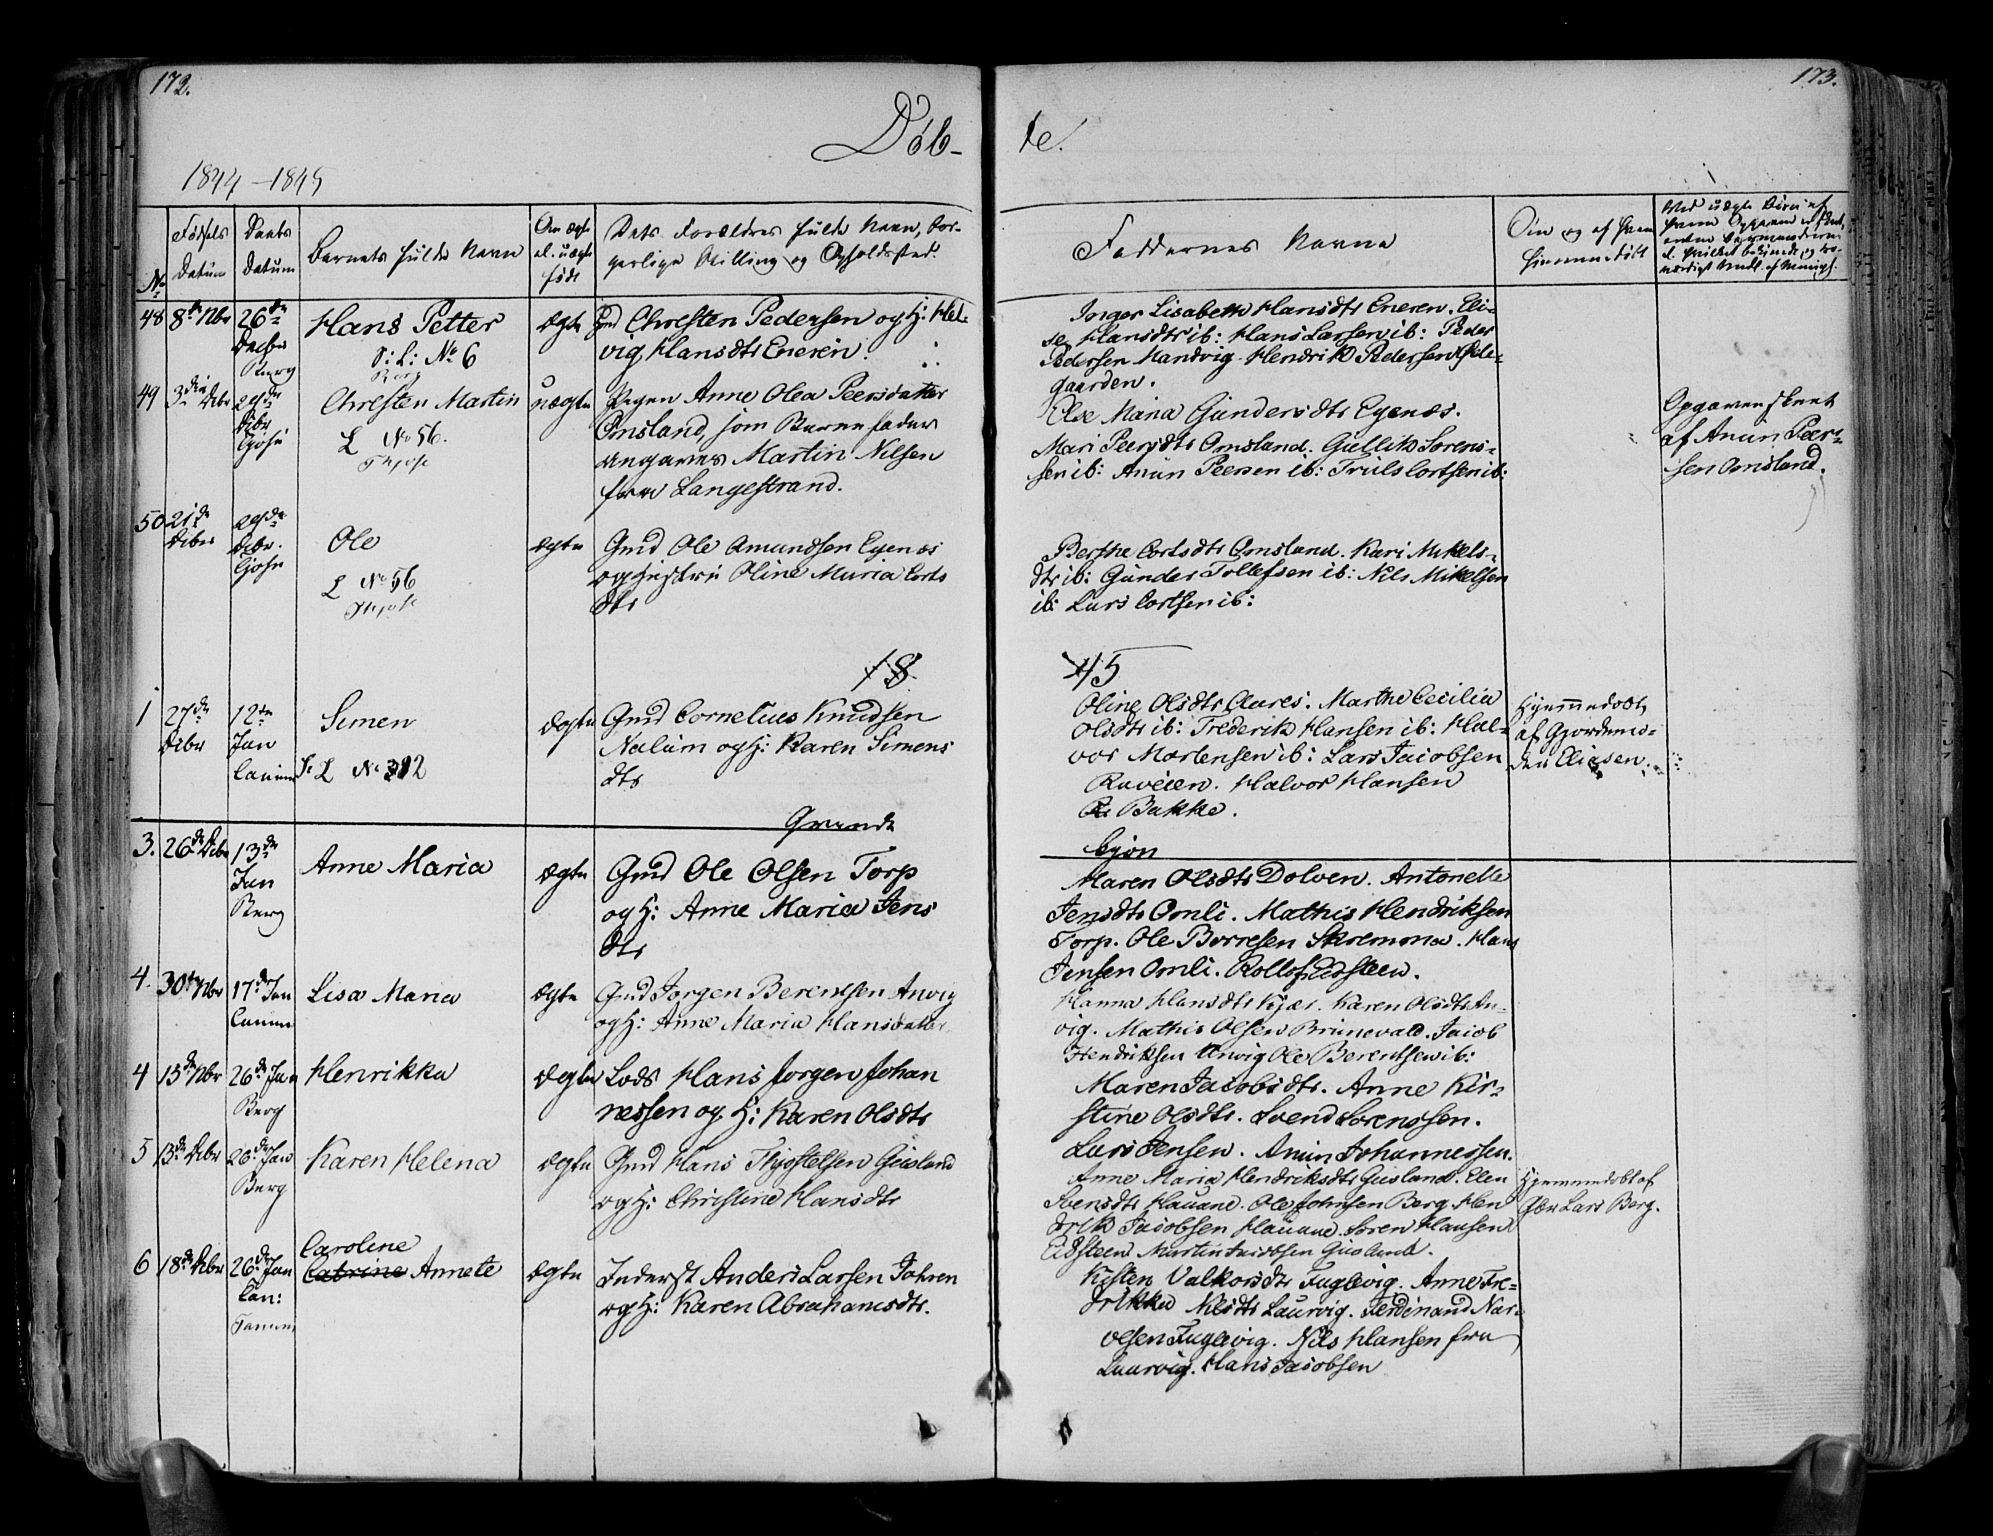 172.
173.
Døb-
te.
1844 - 1845
No
Fødsels
Datum
Daabs
Datum
Barnets fulde Navn
Om ægte
el. uægte
født
Dets Forældres fulde Navn, bor-
gerlige Stilling og Opholdsted.
Faddernes Navne
48
8de Nbr
26de
Decbr
Berg
Hans Petter
S: L: No 6
Berg
ægte
Gmd Christen Pedersen og H: Hel-
vig Hansdtr Eneren.
Inger Lisabeth Hansdtr Eneren. Eli-
se Hansdtr ib: Hans Larsen ib: Peder
Pedersen Mandvig. Hendrik Pedersen
gaarden.
49
3die Dcbr
Dcbr
Christen Martin
L No 56.
uægte
Pigen Anne Olea Peersdatter
Omsland, som Barnefader
angaves Martin Nilsen
fra Langestrand.
Else Maria Gundersdtr Egenæs.
Mari Peersdtr Omsland. Gullik Sørens-
sen ib: Anun Peersen ib: Truls Cortsen ib:
Opgaven skeet
af Anun Peer-
sen Omsland.
50
21de
Dcbr
Dcbr.
Ole
L No 56
ægte
Gmd Ole Amundsen Egenæs
og Hustru Oline Maria Corts
dtr
Berthe Cortsdtr Omsland. Kari Mikels-
dtr ib: Gunder Tollefsen ib: Nils Mikelsen
ib: Lars Cortsen ib:
18
45
1
27de
Dcbr
12te
Jan
Simen
L No 312
ægte
Gmd Cornelius Knudsen
Nalum og H: Karen Simens
dtr
Oline Olsdtr Aares. Marthe Cecilia
Olsdtr ib: Frederik Hansen ib: Hal-
vor Mortensen ib: Lars Jacobsen
Raveien. Halvor Hansen
Bakke.
Hjemmedøbt
af Gjordemo-
der Eliasen.
3.
26de Dcbr
13de
Jan
Berg
Anne Maria
ægte
Gmd Ole Olsen Torp
og H: Anne Maria Jens
dtr
Maren Olsdtr Dolven. Antonette
Jensdtr Omli. Mathis Hendriksen
Torp. Ole Borresen Skremma. Hans
Jensen Omli. Rollof Eidsteen.
4.
30te Nbr
17de Jan
Lisa Maria
ægte
Gmd Jørgen Berentsen Anvig
og H: Anne Maria Hansdatter
Hanna Hansdtr Kjær. Karen Olsdtr An-
vig. Mathis Olsen Brunevald. Jacob
Hendriksen Anvig Ole Berentsen ib:
4
15de Nbr
26de Jan
Berg
Henrikka
ægte
Lods Hans Jørgen Johan
nessen og H: Karen Olsdtr
Maren Jacobsdtr. Anne Kir-
stine Olsdtr. Svend Sørenssen.
Lars Jensen. Anun Johannessen.
5
13de Dcbr
26de Jan
Berg
Karen Helena
ægte
Gmd Hans Thostelsen Gusland
og H: Christine Hansdtr
Anne Maria Hendriksdtr Gusland. Elen
Svensdtr Hauane. Ole Johnsen Berg. Hen
drik Jacobsen Hauane. Søren Hansen
Eidsteen Martin Jacobsen Gusland.
Hjemmedøbt af
Lars Berg.
6
18de Dcbr
26de Jan
Tan:
Tanum
Caroline
Catrine Annete
ægte
Inderst Anders Larsen Jahren
og H: Karen Abrahamsdtr.
Kisten Valkorsdtr Fuglevig. Anne Fre-
drikke Nilsdtr Laurvig. Ferdinand Nar-
vesen Fuglevig. Nils Hansen fra
Laurvig. Hans Jacobsen